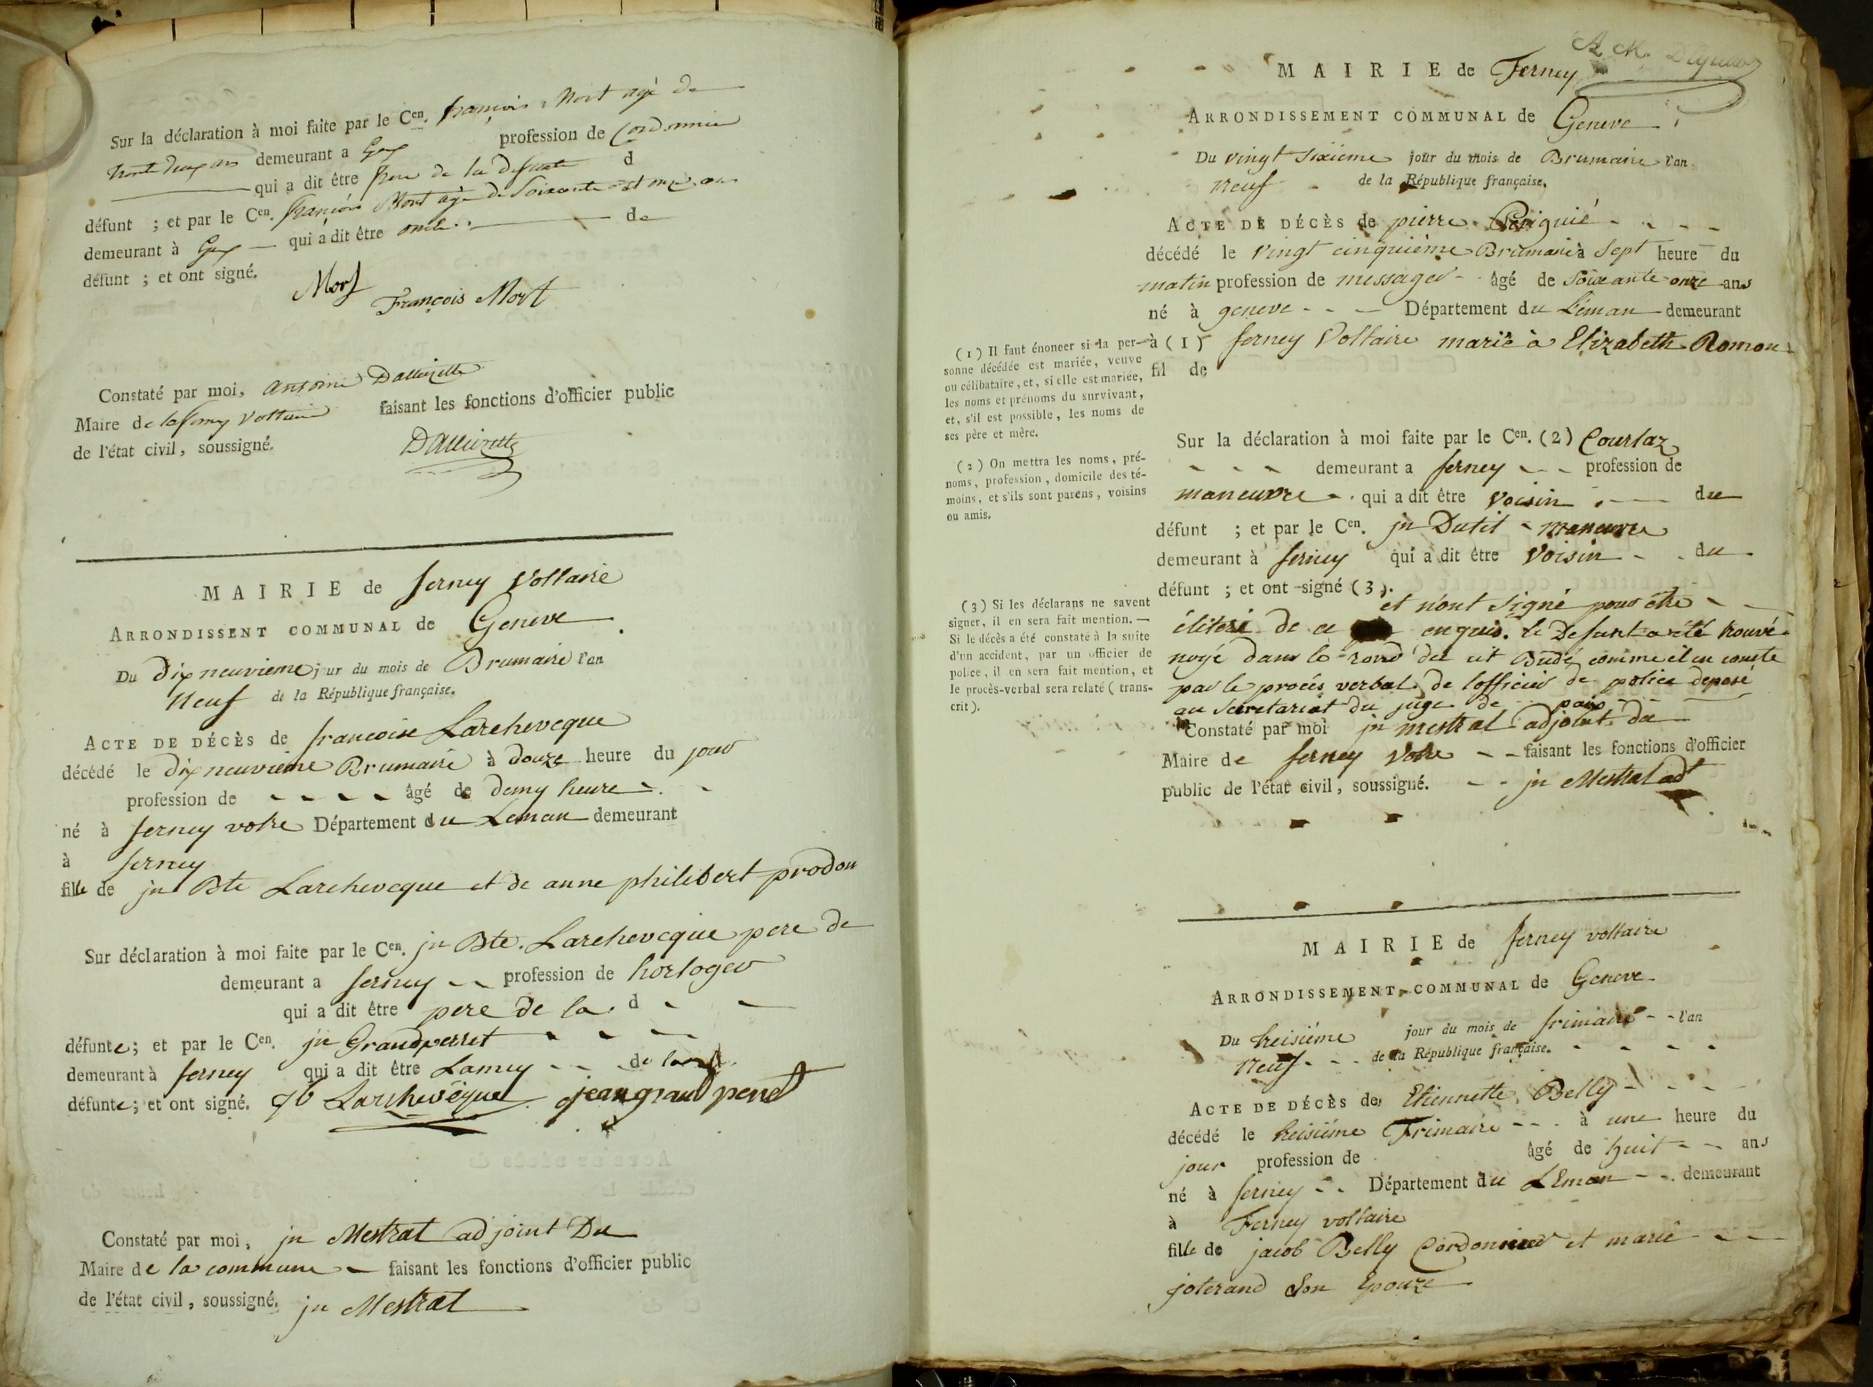 Sur la déclaration à moi faite par le Cen. françois Mort agé de
trente deux ans demeurant a Gex profession de Cordonnier
qui a dit être frere de la defunte d
défunt ; et par le Cen. françois Mort agé de Soixante et onze ans
demeurant à Gex qui a dit être oncle de
défunt ; et ont signé.
Mort
François Mort
Constaté par moi, antoine Dallizette
Maire de faisant les fonctions d'officier public
de l'état civil, soussigné.
MAIRIE de ferney Voltaire
ARRONDISSENT COMMUNAL de Geneve
Du Dix neuvieme jour du mois de Brumaire l'an
Neuf de la République française.
ACTE DE DÉCÈS de francoise Larcheveque
décédé le dix neuvieme Brumaire à douze heure du jour
profession de âgé de demy heure
né à ferney votre Département du Leman demeurant
à ferney
fille de jn Bte Larchevcque et de anne philibert prodon
Sur déclaration à moi faite par le Cen. jn Bte. Larchevcque pere de
demeurant a ferney profession de horloger
qui a dit être pere de la d
défunte; et par le Cen. jn Grandperret
demeurant à ferney qui a dit être Lamy de la
défunte; et ont signé. Larchevêque jean grand perret
Constaté par moi, jn Mestrat adjoint Du
Maire de la commune faisant les fonctions d'officier public
de l'état civil, soussigné. jn Mestrat
MAIRIE de Ferney
ARRONDISSEMENT COMMUNAL de Geneve
Du vingt Sixième jour du mois de Brumaire l'an
neuf de la République française.
ACTE DE DÉCÈS de pierre
décédé le vingt cinquième Brumaire à Sept heure du
matin profession de messager âgé de Soixante onze ans
né à geneve Département du Léman demeurant
à (1) ferney Voltaire marié à Elizabeth Romon
fil de
(1) Il faut énoncer si la per-
sonne décédée est mariée, veuve
ou célibataire, et, si elle est mariée,
les noms et prénoms du survivant,
et, s'il est possible, les noms de
ses père et mère.
Sur la déclaration à moi faite par le Cen. (2) Courlaz
demeurant a ferney profession de
maneuvre qui a dit être voisin du
défunt ; et par le Cen. jn Dutil maneuvre
demeurant à ferney qui a dit être Voisin du
défunt ; et ont signé (3).
(2) On mettra les noms, pré-
noms, profession, domicile des té-
moins, et s'ils sont parens, voisins
ou amis.
et n'ont signé pour être
de ce enquis. le Defunt a été trouvé
noyé dans le du cit Budé comme il en conste
par le procés verbal de l'officier de police deposé
au Secretariat du juge de paix
(3) Si les déclarans ne savent
signer, il en sera fait mention. —
Si le décès a été constaté à la suite
d'un accident, par un officier de
police, il en sera fait mention, et
le procès-verbal sera relaté (trans-
crit).
Constaté par moi jn mestral adjoint du
Maire de ferney votre faisant les fonctions d'officier
public de l'état civil, soussigné. jn Mestral adt
MAIRIE de ferney voltaire
ARRONDISSEMENT COMMUNAL de Geneve
Du treisiéme jour du mois de frimaire l'an
Neuf de la République française.
ACTE DE DÉCÈS de Etiennette Belly
décédé le treisiéme Frimaire à une heure du
jour profession de âgé de huit ans
né à ferney Département du LEman demeurant
à Ferney voltaire
fille de jacob Belly Cordonnier et marie
joterand Son Epouze